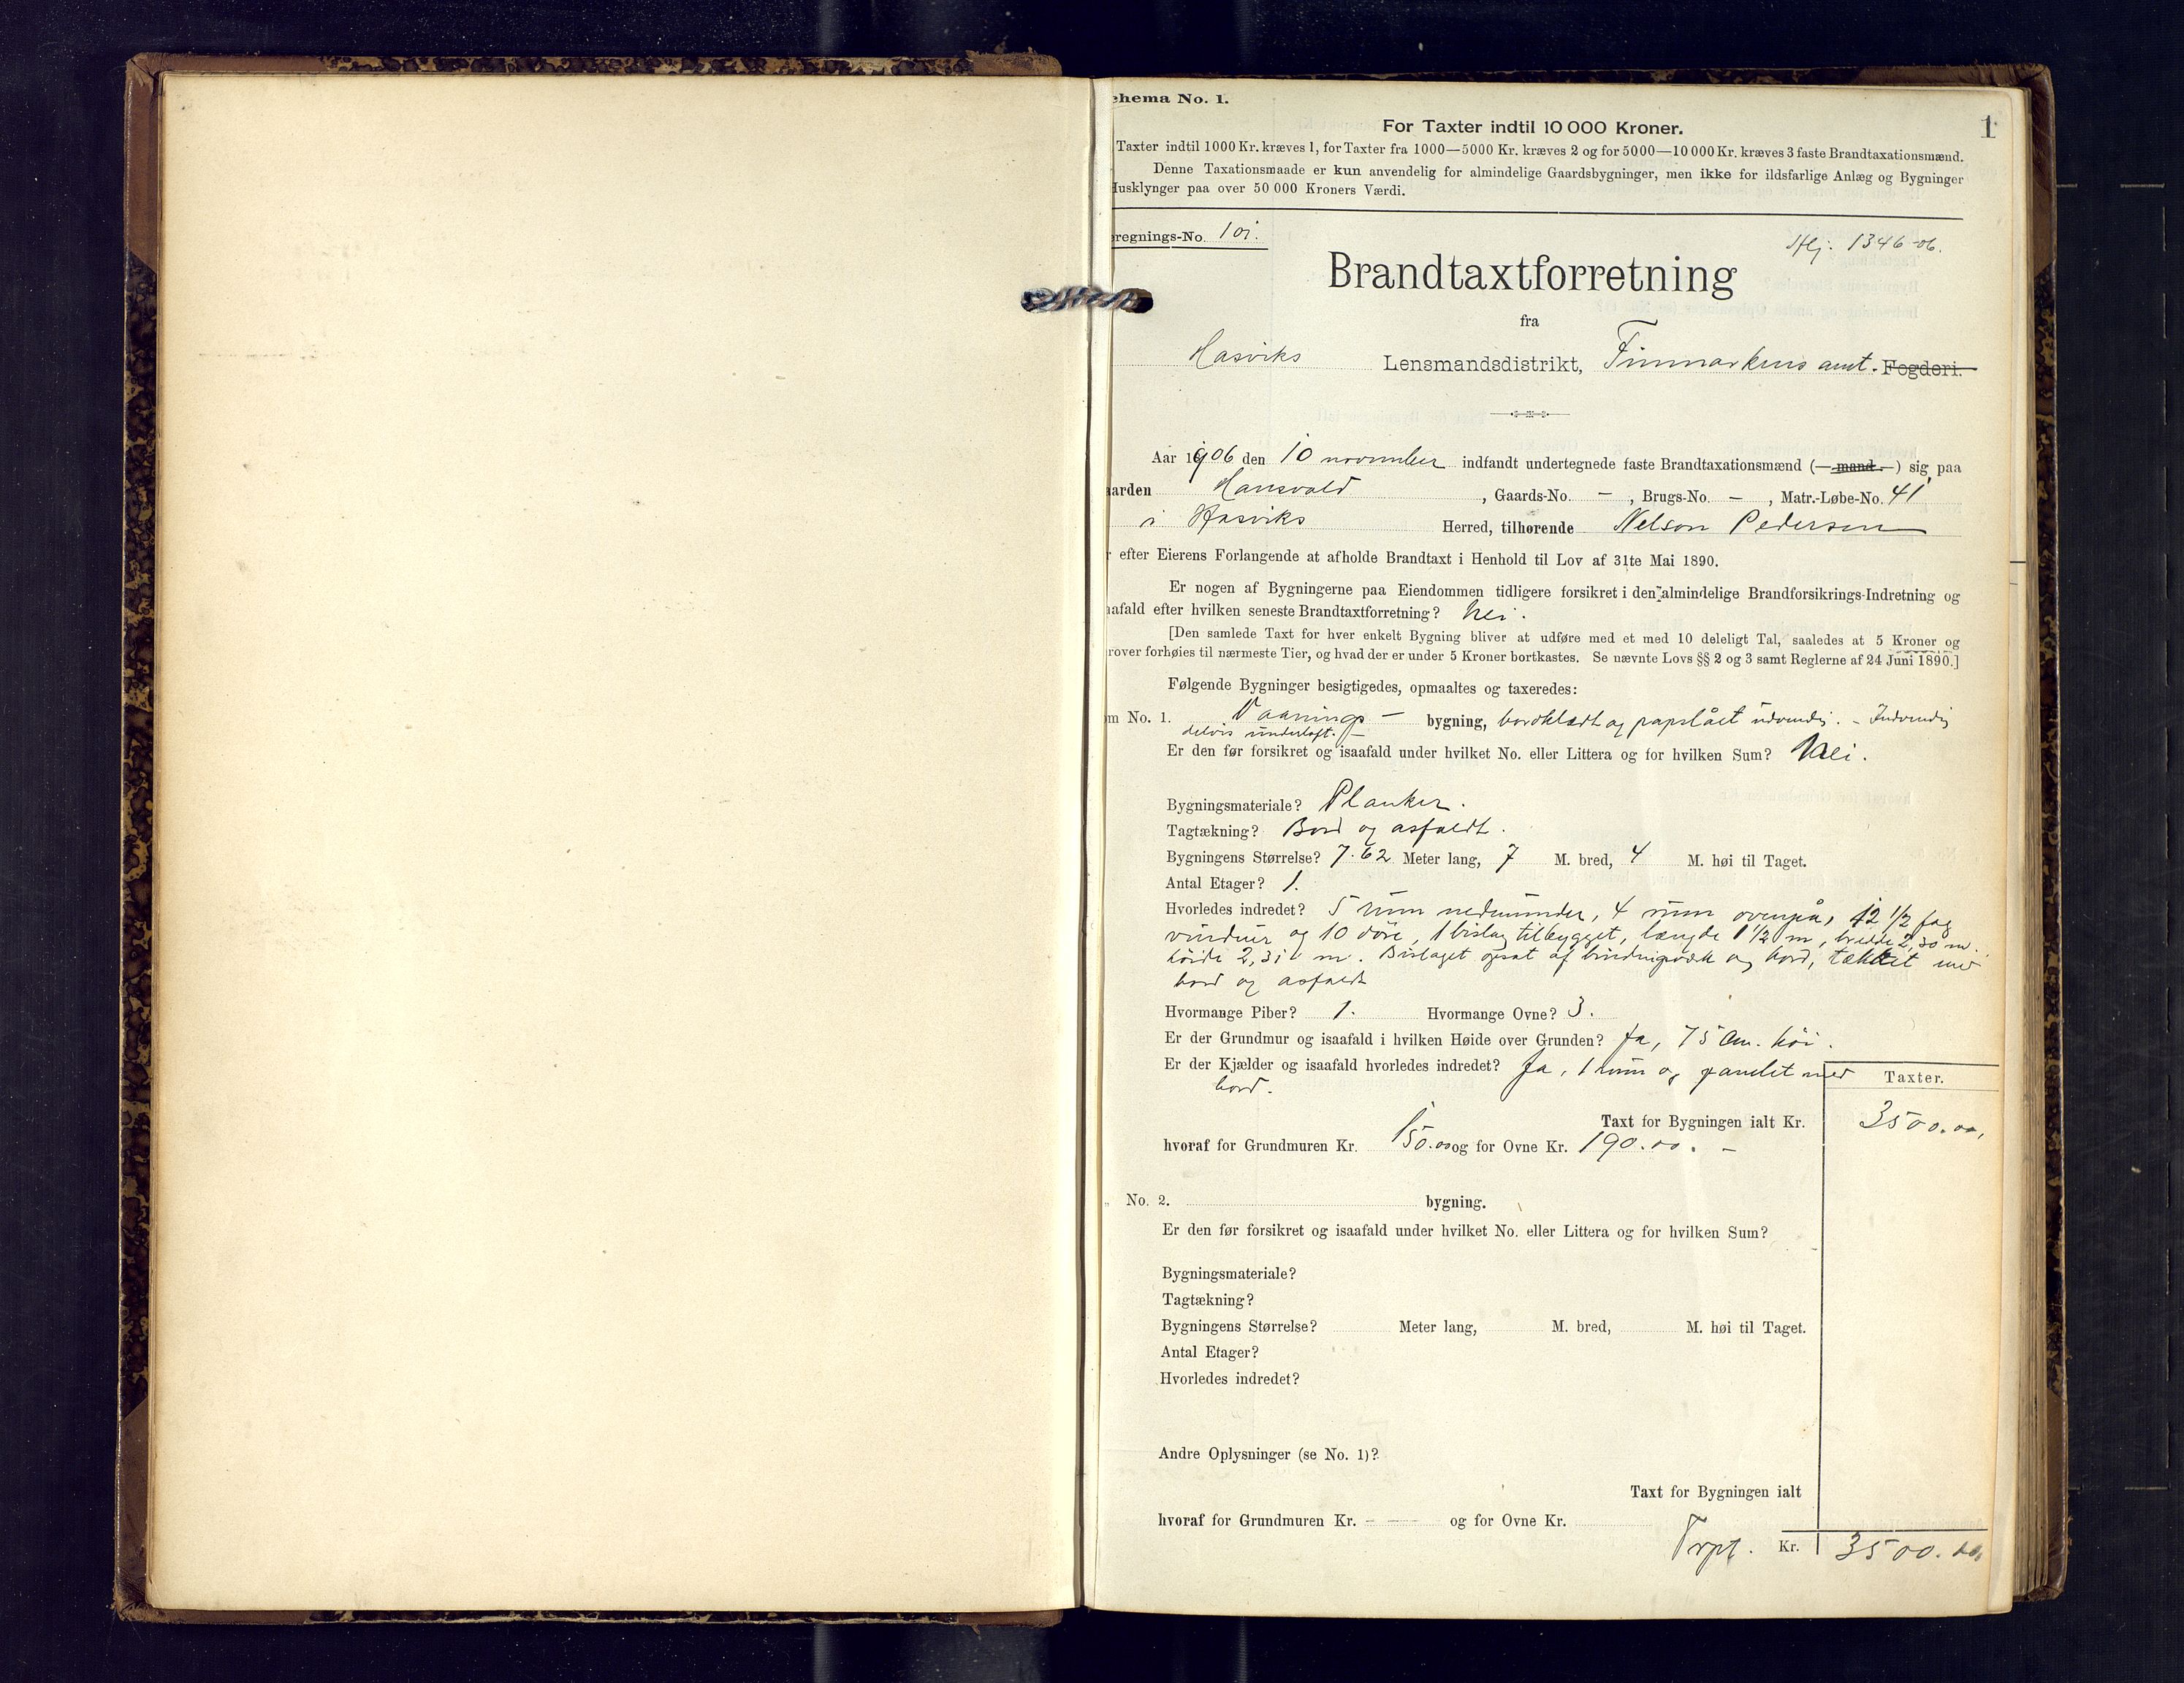 1
chema No. 1.
For Taxter indtil 10 000 Kroner.
Taxter indtil 1000 Kr. kræves 1, for Taxter fra 1000—5000 Kr. kræves 2 og for 5000—10 000 Kr. kræves 3 faste Brandtaxationsmænd.
Denne Taxationsmaade er kun anvendelig for almindelige Gaardsbygninger, men ikke for ildsfarlige Anlæg og Bygninger
Husklynger paa over 50 000 Kroners Værdi.
regnings-No. 101.
1346-06.
Brandtaxtforretning
fra
Hasviks Lensmandsdistrikt, Finmarkens amt. Fogderi.
Aar 1906 den 10 november indfandt undertegnede faste Brandtaxationsmænd (—mand—) sig paa
aarden Hansvold, Gaards-No. –, Brugs-No. –, Matr.-Løbe-No. 41
i Hasviks Herred, tilhørende Nelson Pedersen
r efter Eierens Forlangende at afholde Brandtaxt i Henhold til Lov af 31te Mai 1890.
Er nogen af Bygningerne paa Eiendommen tidligere forsikret i den almindelige Brandforsikrings-Indretning og
aafald efter hvilken seneste Brandtaxtforretning? Nei.
[Den samlede Taxt for hver enkelt Bygning bliver at udføre med et med 10 deleligt Tal, saaledes at 5 Kroner og
rover forhøies til nærmeste Tier, og hvad der er under 5 Kroner bortkastes. Se nævnte Lovs §§ 2 og 3 samt Reglerne af 24 Juni 1890.]
Følgende Bygninger besigtigedes, opmaaltes og taxeredes:
m No. 1. Vaanings – bygning, bordklædt og papslået udvendig. – Indvendig
delvis underloft. –
Er den før forsikret og isaafald under hvilket No. eller Littera og for hvilken Sum? Nei.
Bygningsmateriale? Planker.
Tagtækning? Bord og asfaldt.
Bygningens Størrelse? 7.62 Meter lang, 7 M. bred, 4 M. høi til Taget.
Antal Etager? 1.
Hvorledes indredet? 5 rum nedenunder, 4 rum ovenpå, 12 1/2 fag
vinduer og 10 döre, 1 bislag tilbygget, længde 1 1/2 m, bredde 2,30 m.
höide 2,31 m. Bislaget opsat af bindingsværk og bord, tækket med
bord og asfaldt
Hvormange Piber? 1. Hvormange Ovne? 3.
Er der Grundmur og isaafald i hvilken Høide over Grunden? Ja, 75 cm. höi.
Er der Kjælder og isaafald hvorledes indredet? Ja, 1 rum og panelet med
bord.
Taxter.
Taxt for Bygningen ialt Kr. 3500.00,
hvoraf for Grundmuren Kr. 150.00 og for Ovne Kr. 190.00. –
„ No. 2. bygning.
Er den før forsikret og isaafald under hvilket No. eller Littera og for hvilken Sum?
Bygningsmateriale?
Tagtækning?
Bygningens Størrelse? Meter lang, M. bred, M. høi til Taget.
Antal Etager?
Hvorledes indredet?
Andre Oplysninger (se No. 1)?
Taxt for Bygningen ialt
hvoraf for Grundmuren Kr. – — og for Ovne Kr.
Trpt. Kr. 3500.00,